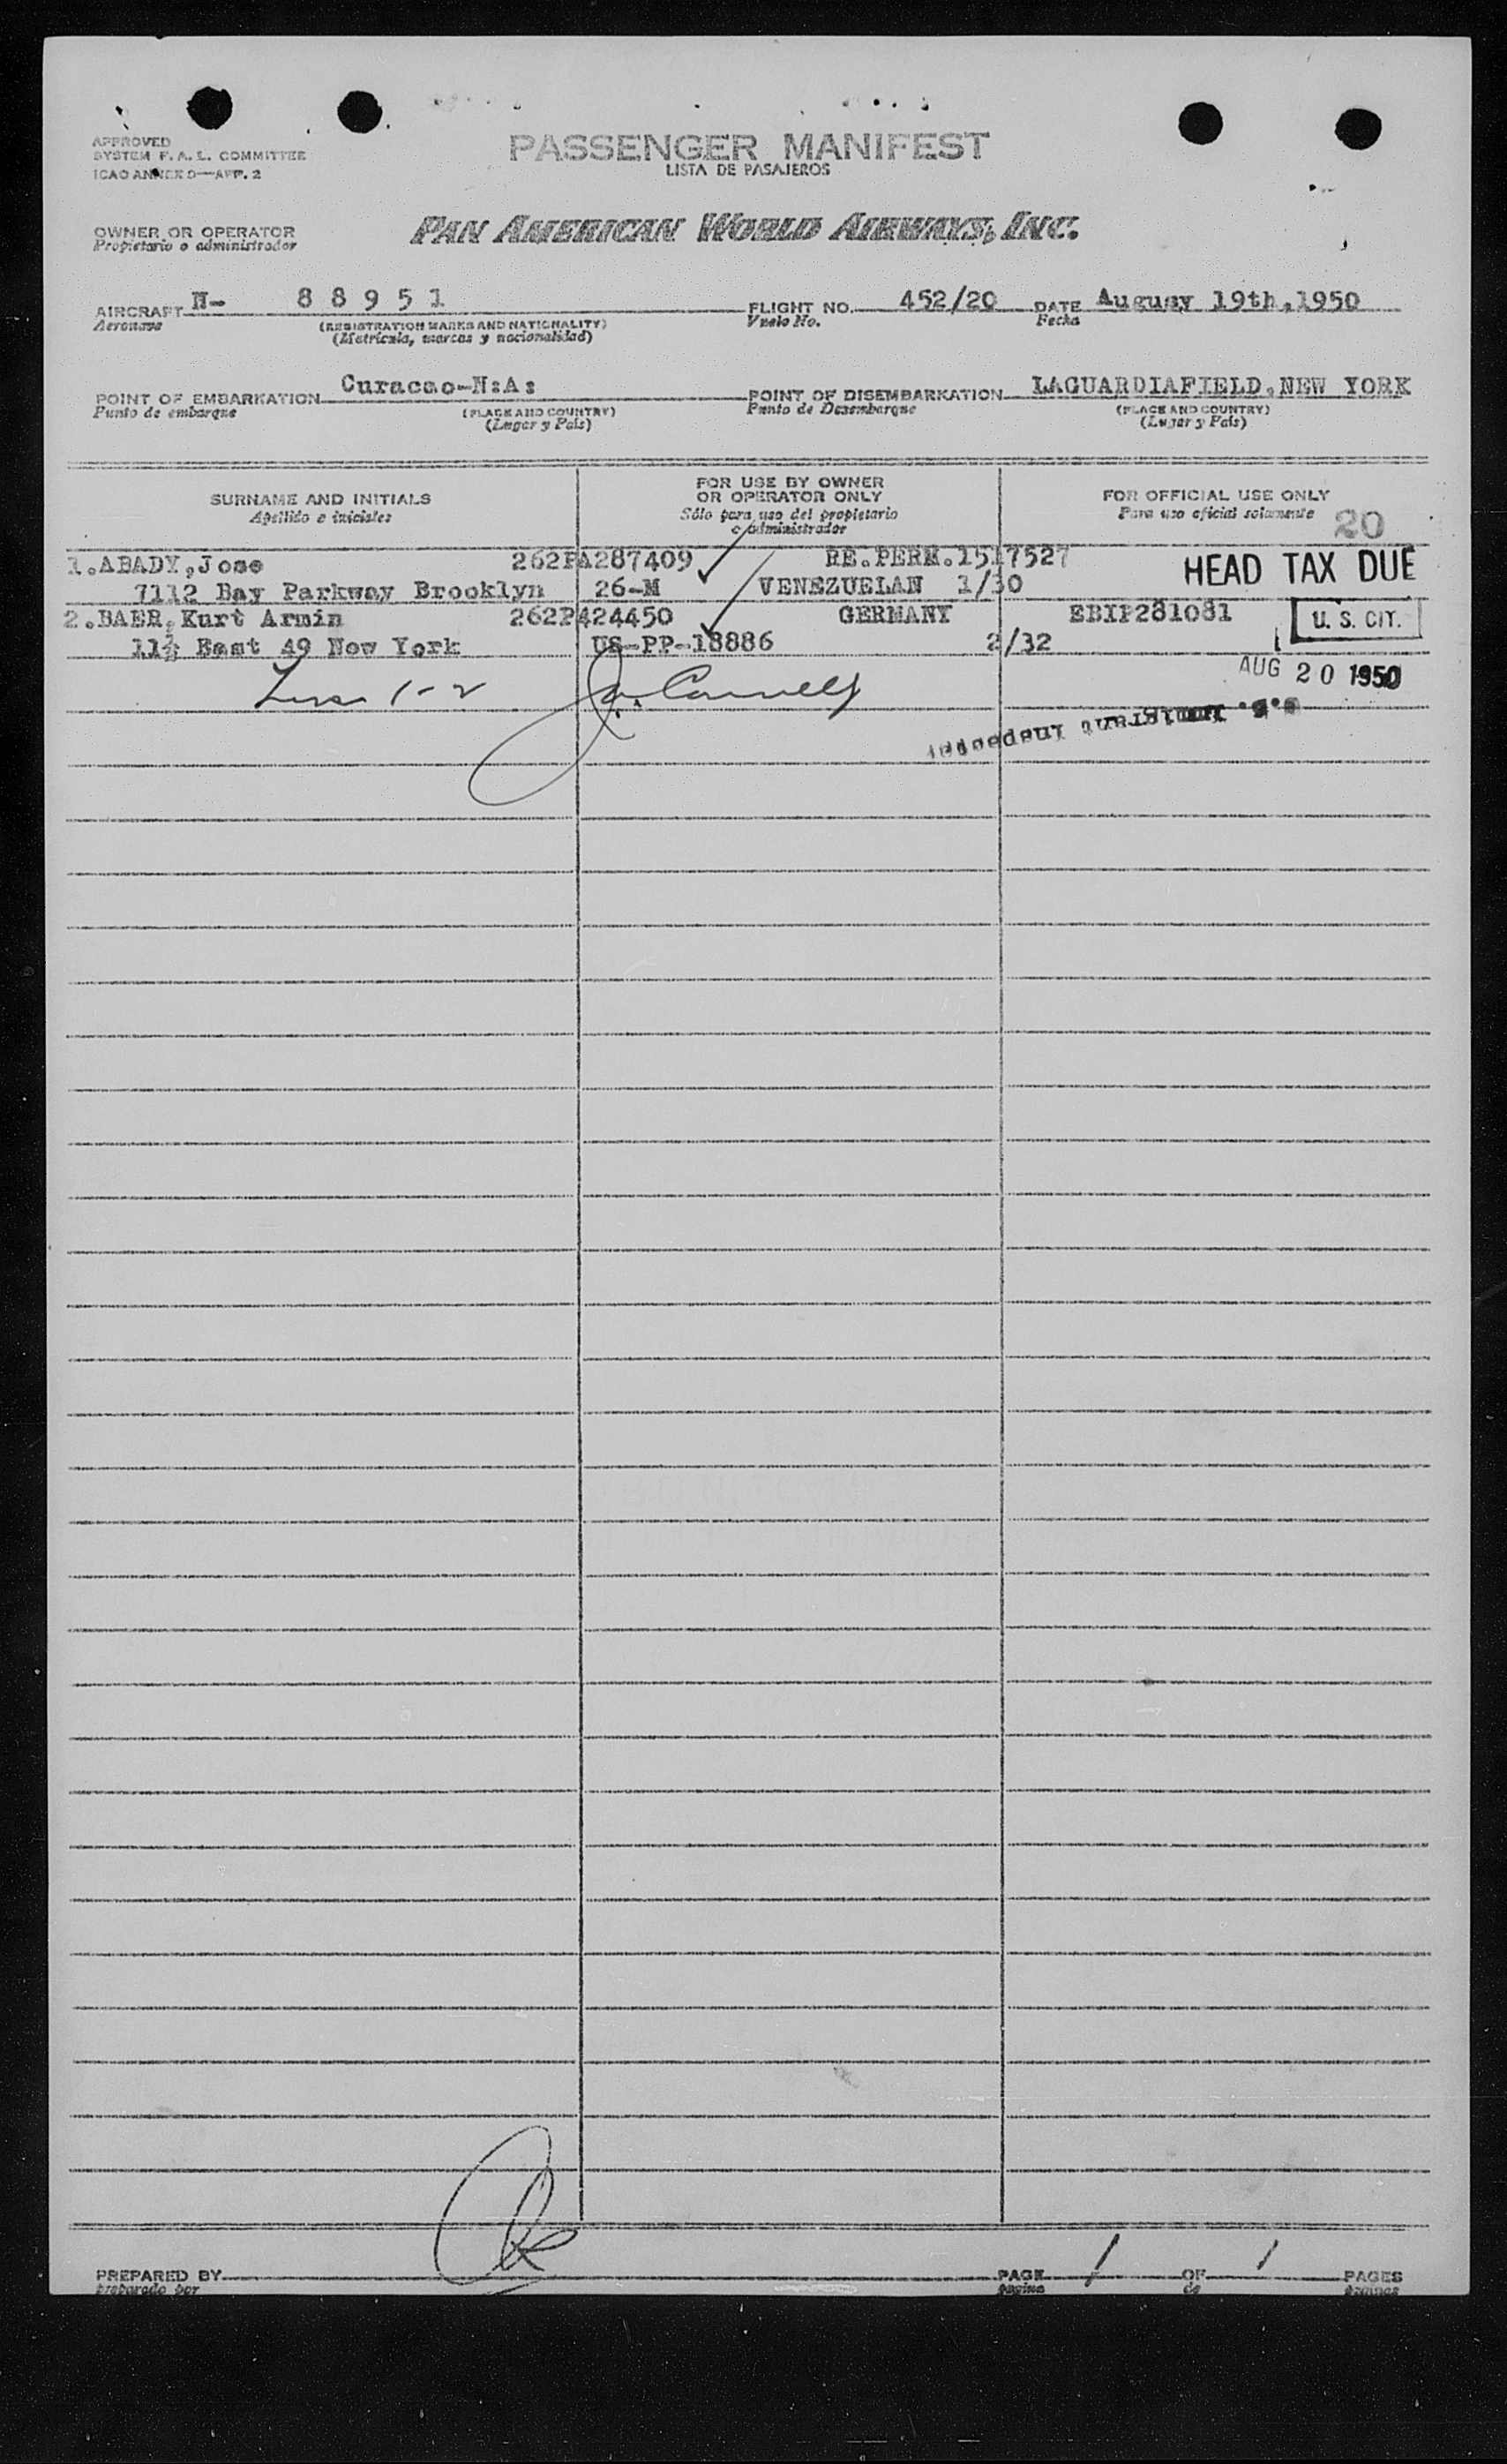 APPROVED
SYSTEM F. A. L. COMMITTEE
ICAO ANNEX 9—APP. 2
PASSENGER MANIFEST
LISTA DE PASAJEROS
OWNER OR OPERATOR
Propietario o administrador
PAN AMERICAN WORLD AIRWAYS, INC.
AIRCRAFT N- 8 8 9 5 1 FLIGHT NO. 452/20 DATE Augusy 19th,1950
Aeronave (REGISTRATION MARKS AND NATIONALITY) Vuelo No. Fecha
(Matrícula, marcas y nacionalidad)
POINT OF EMBARKATION Curacao-N:A: POINT OF DISEMBARKATION LAGUARDIAFIELD,NEW YORK
Punto de embarque (PLACE AND COUNTRY) Punto de Desembarque (PLACE AND COUNTRY)
(Lugar y País) (Lugar y País)
SURNAME AND INITIALS FOR USE BY OWNER OR OPERATOR ONLY FOR OFFICIAL USE ONLY
Apellido e iniciales Sólo para uso del propietario o administrador Para uso oficial solamente 20
1.ABADY,Jose 262PA287409 RE.PERM.1517527 HEAD TAX DUE
7112 Bay Parkway Brooklyn 26-M VENEZUELAN 1/30
2.BAER,Kurt Armin 262P424450 GERMANY EBIP281081 U. S. CIT.
East 49 New York US-PP-18886 2/32
AUG 20 1950
1-2
Immigrant Inspector
PREPARED BY PAGE 1 OF 1 PAGES
preparado por página de páginas